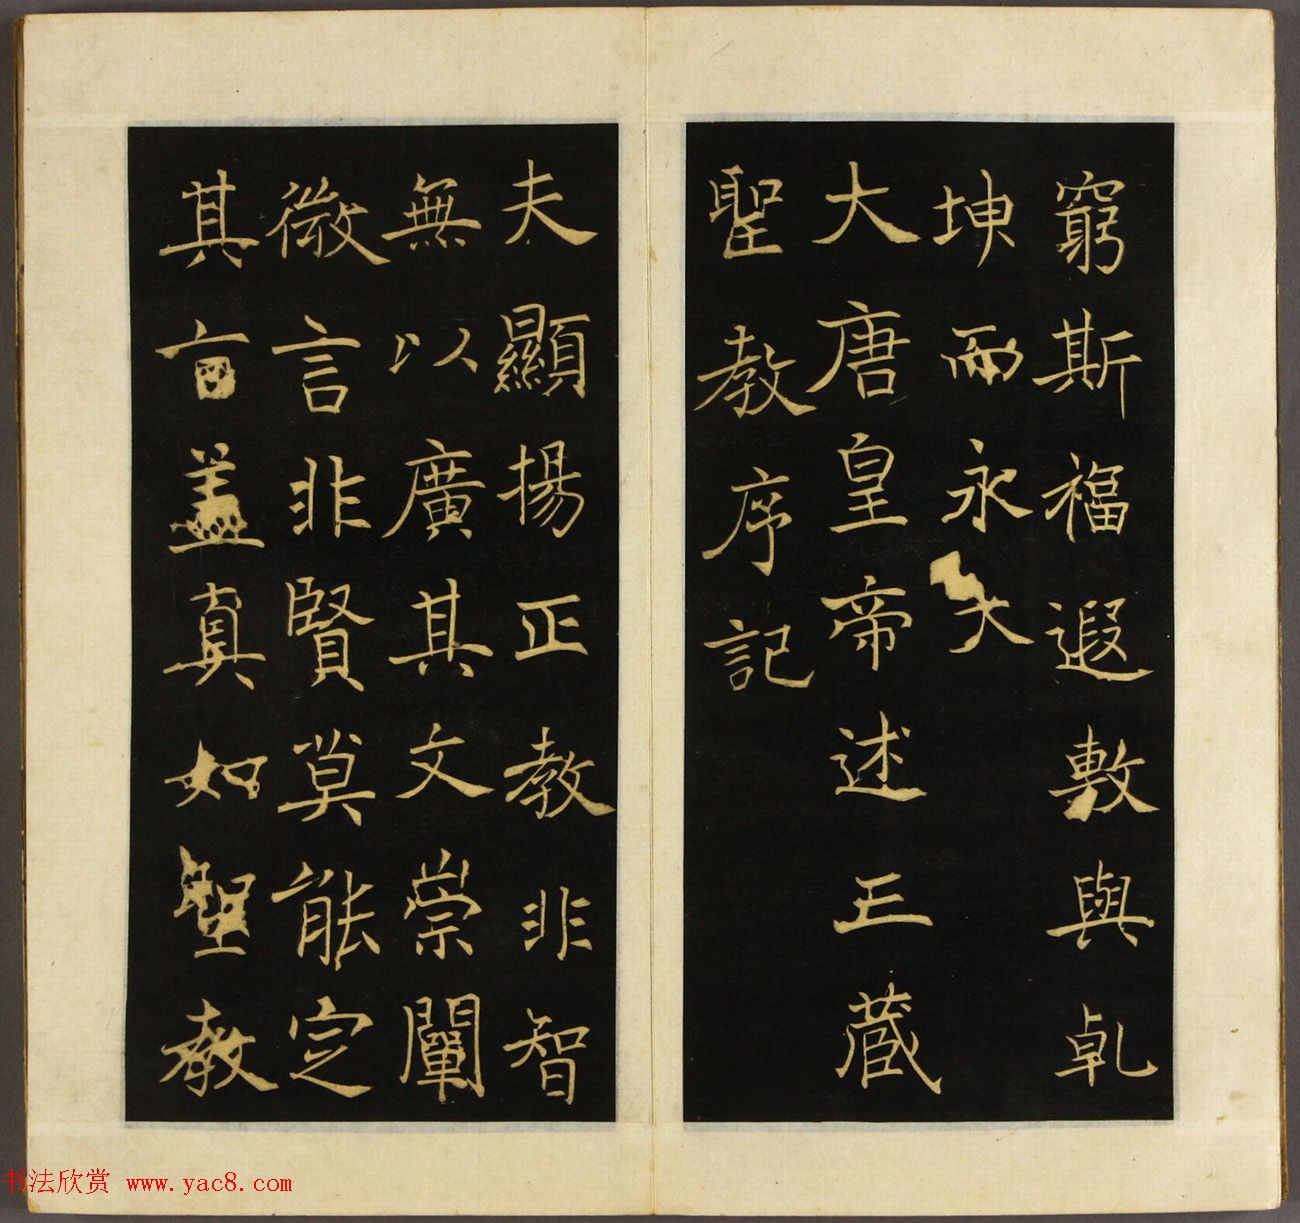 窮斯福遐敷與乹
坤而永大
大唐皇帝述三藏
聖教序記
夫顯揚正教非智
無以廣其文崇闡
微言非賢莫能定
其旨盖真如聖教
书法欣赏 www.yac8.com